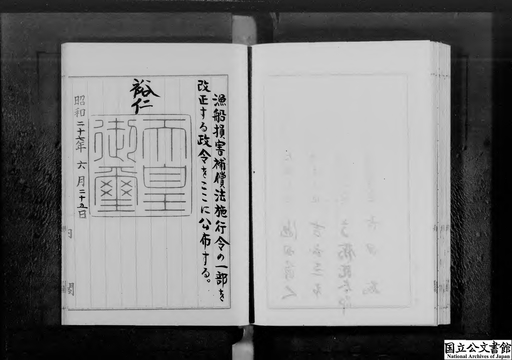 漁船損害補償法施行令の一部を
改正する政令をここに公布する。
裕仁
天皇
御璽
昭和二十七年六月二十五日
内
閣
国立公文書館
National Archives of Japan